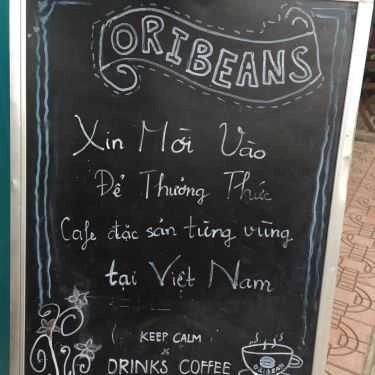 ORIBEANS
Xin Mời Vào
Để Thưởng Thức
Cafe đặc sản từng vùng
tại Việt Nam
KEEP CALM
&
DRINKS COFFEE
ORIBEANS